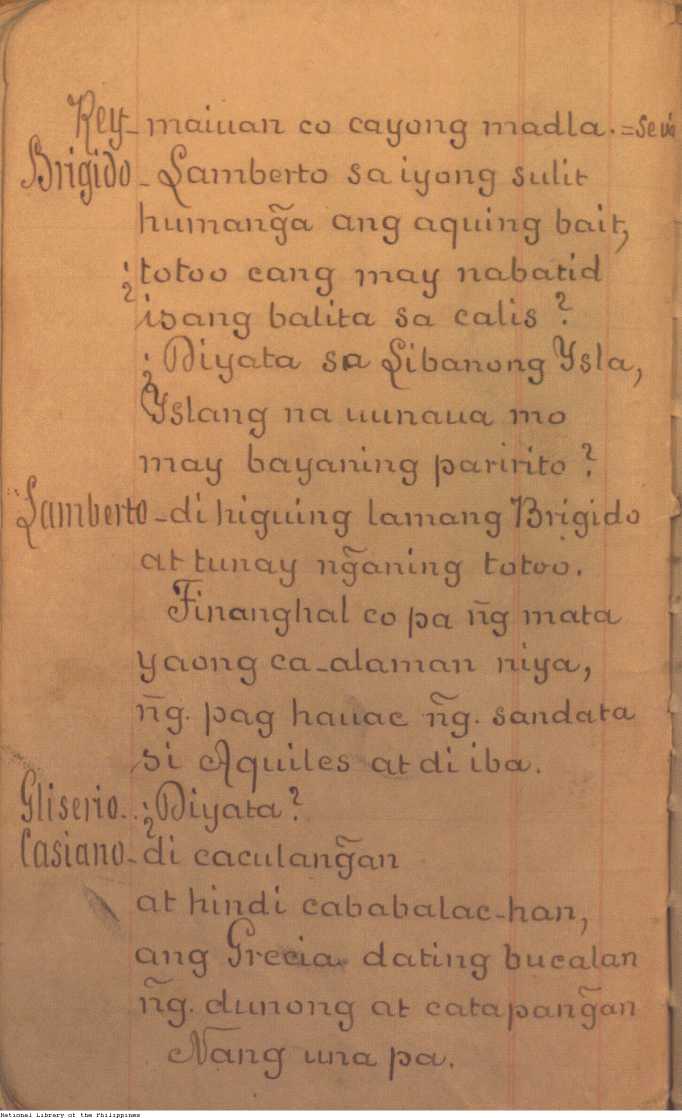 Rey - maiuan co cayong madla. = se vá
Brigido - Lamberto sa iyong sulit
humang̃a ang aquing bait,
¿totoo cang may nabatid
isang balita sa calis?
¿Diyata sa Libanong Ysla,
Yslang na uunaua mo
may bayaning paririto?
Lamberto - di higuing lamang Brigido
at tunay ng̃aning totoo.
Tinanghal co pa ñg mata
yaong ca-alaman niya,
ñg. pag hauac ñg. sandata
si Aquiles at di iba.
Gliserio.. ¿Diyata?
Casiano - di caculang̃an
at hindi cababalac-han,
ang Grecia dating bucalan
ñg. dunong at catapang̃an
Nang una pa.
National Library of the Philippines